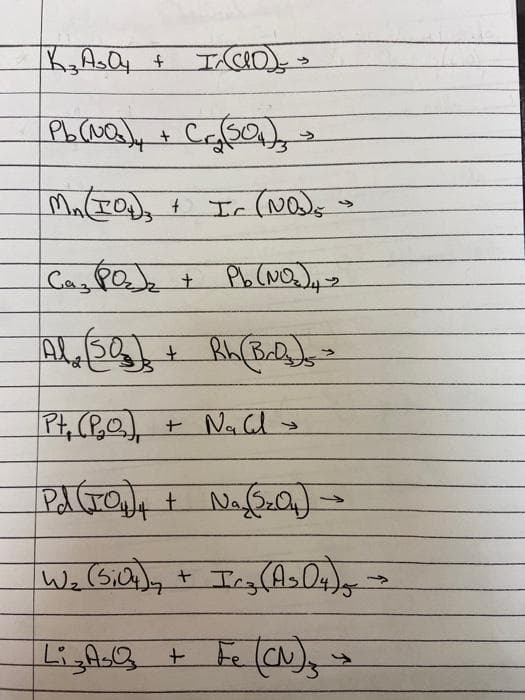 K₃AsO₄ + Ir(ClO)₅ →
Pb(NO₃)₄ + Cr₂(SO₄)₃ →
Mn(IO₄)₃ + Ir(NO₃)₅ →
Ca₃(PO₂)₂ + Pb(NO₂)₄ →
Al₂(SO₃)₃ + Rh(BrO₃)₅ →
Pt₁(P₂O₇)₁ + NaCl →
Pd(IO₄)₄ + Na₂(S₂O₄) →
W₂(SiO₄)₇ + Ir₃(AsO₄)₅ →
Li₃AsO₃ + Fe(CN)₃ →